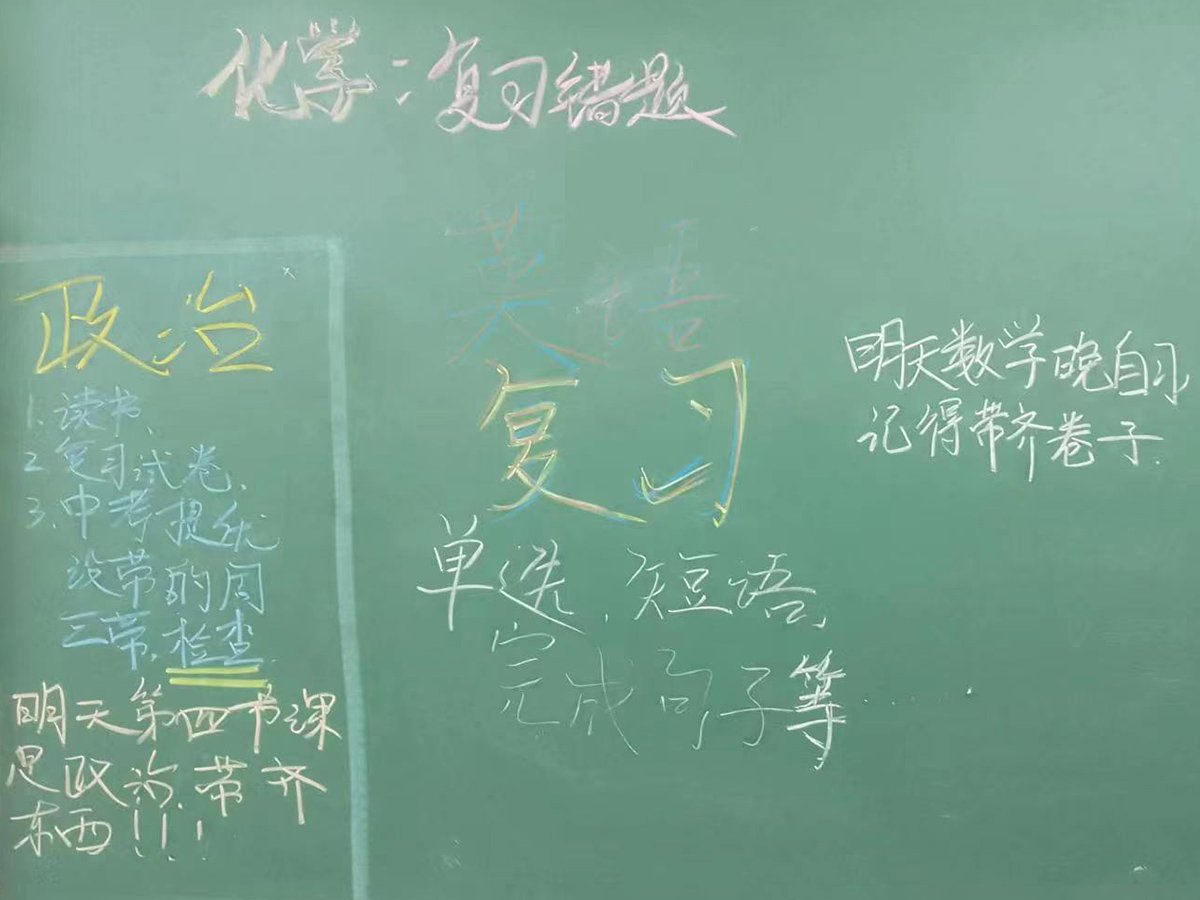 化学：复习错题
英语
复习
单选、短语、
完成句子等......
政治
1. 读书、
2. 复习试卷、
3. 中考提纲
没带的周
三带，检查.
明天第四节课
是政治,带齐
东西!!!
明天数学晚自习
记得带齐卷子.